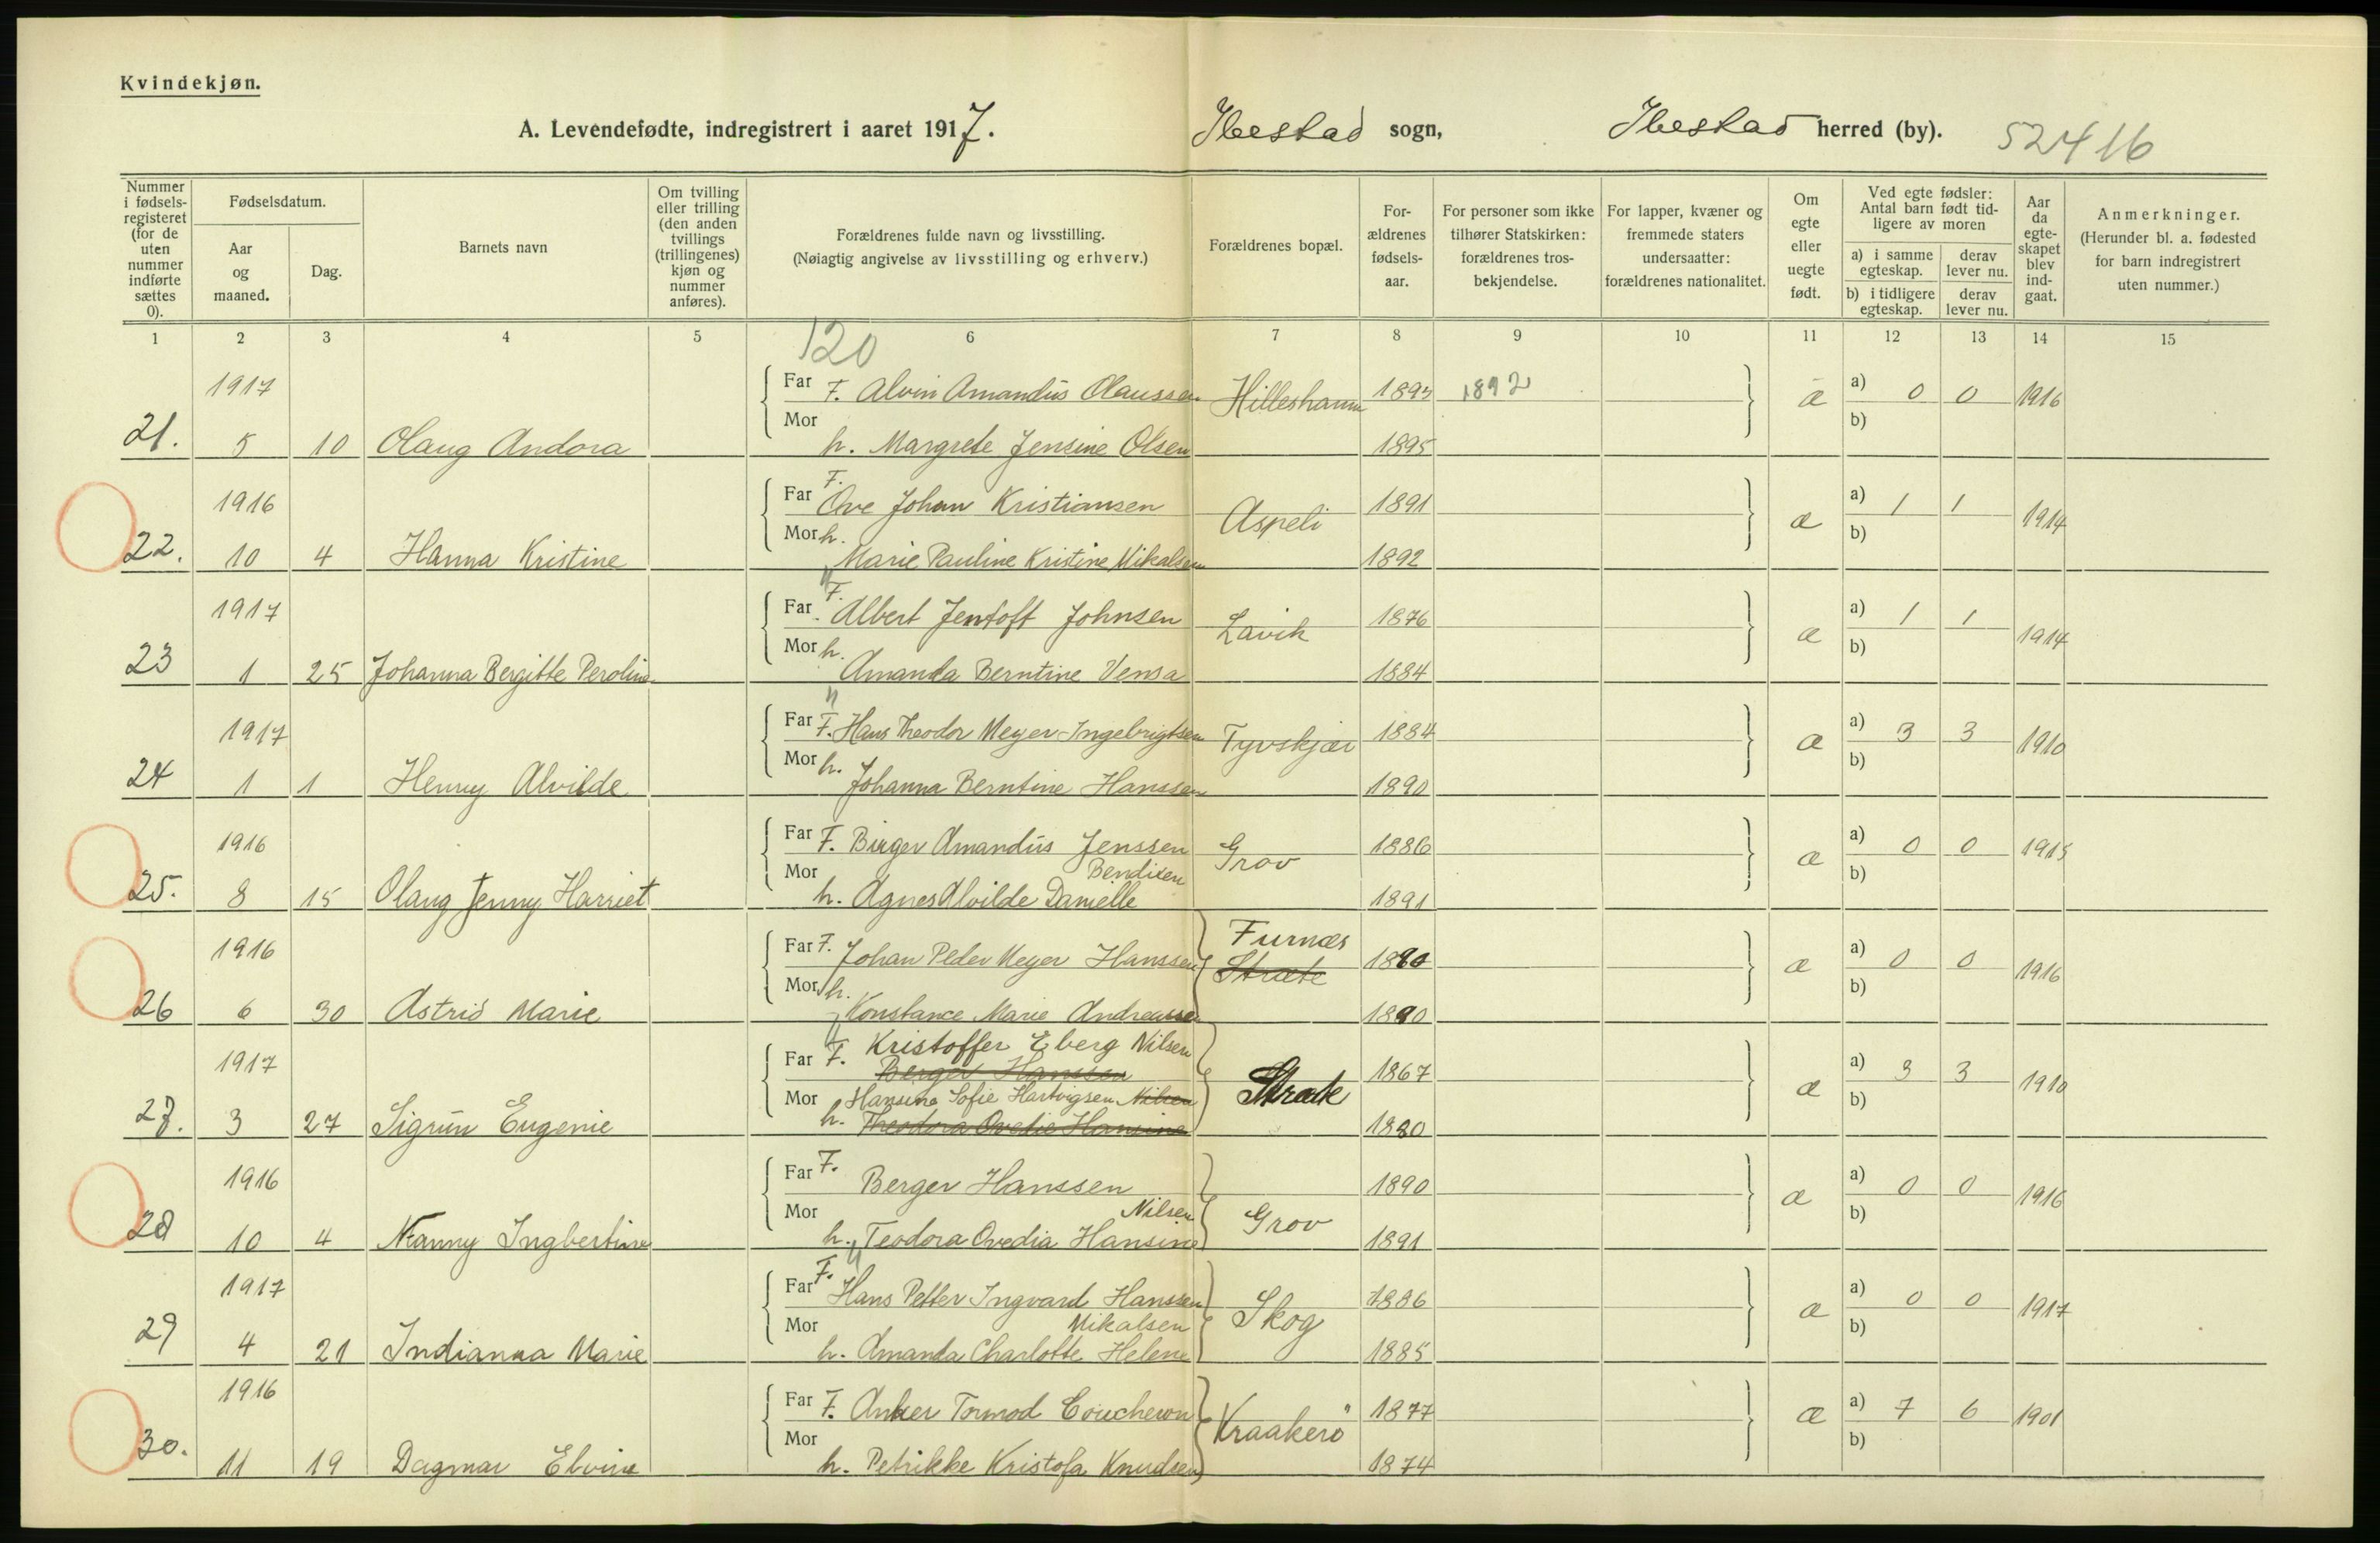 Kvindekjøn.
A. Levendefødte, indregistrert i aaret 1917. Ibestad sogn, Ibestad herred (by). 52416
Nummer i fødsels-registeret (for de uten nummer indførte sættes 0).
Fødselsdatum.
Aar og maaned.
Dag.
Barnets navn
Om tvilling eller trilling (den anden tvillings (trillingenes) kjøn og nummer anføres).
Forældrenes fulde navn og livsstilling.
(Nøiagtig angivelse av livsstilling og erhverv.)
Forældrenes bopæl.
For-ældrenes fødsels-aar.
For personer som ikke tilhører Statskirken: forældrenes tros-bekjendelse.
For lapper, kvæner og fremmede staters undersaatter: forældrenes nationalitet.
Om egte eller uegte født.
Ved egte fødsler: Antal barn født tid-ligere av moren
a) i samme egteskap.
derav lever nu.
b) i tidligere egteskap.
derav lever nu.
Aar da egte-skapet blev ind-gaat.
Anmerkninger.
(Herunder bl. a. fødested for barn indregistrert uten nummer.)
1 2 3 4 5 6 7 8 9 10 11 12 13 14 15
120
1917 Far F. Alvin Amandus Olaussen Hilleshamn 1893 1892 æ a) 0 0 1916
21. 5 10 Olaug Andora Mor h. Margrete Jensine Olsen 1895 b)
1916 Far F. Ove Johan Kristiansen Aspeli 1891 æ a) 1 1 1914
22. 10 4 Hanna Kristine Mor h. Marie Pauline Kristine Mikalsen 1892 b)
1917 Far F. Albert Jentoft Johnsen Lavik 1876 æ a) 1 1 1914
23 1 25 Johanna Bergitte Peroline Mor h. Amanda Berntine Vensa 1884 b)
1917 Far F. Hans Theodor Meyer Ingebrigtsen Tyvskjær 1884 æ a) 3 3 1910
24 1 1 Henny Alvilde Mor h. Johanna Berntine Hanssen 1890 b)
1916 Far F. Birger Amandus Jenssen Grov 1886 æ a) 0 0 1915
Bendixen
25. 8 15 Olaug Jenny Harriet Mor h. Agnes Alvilde Danielle 1891 b)
Furnes
1916 Far F. Johan Peder Meyer Hanssen Stræte 1890 æ a) 0 0 1916
26 6 30 Astrid Marie Mor h. Konstance Marie Andreassen 1890 b)
Kristoffer Eberg Nilsen
1917 Far F. Berger Hanssen Stræte 1867 æ a) 3 3 1910
Hansine Sofie Hartvigsen Nilsen
27. 3 27 Sigrun Eugenie Mor h. Theodora Ovedie Hansine 1880 b)
1916 Far F. Berger Hanssen Grov 1890 æ a) 0 0 1916
Nilsen
28 10 4 Nanny Ingbertine Mor h. Teodora Ovedia Hansine 1891 b)
1917 Far F. Hans Petter Ingvard Hanssen Skog 1886 æ a) 0 0 1917
Mikalsen
29 4 21 Indianna Marie Mor h. Amanda Charlotte Helene 1885 b)
1916 Far F. Anker Tormod Coucheron Kraakerö 1877 æ a) 7 6 1901
30. 11 19 Dagmar Elvine Mor h. Petrikke Kristofa Knudsen 1874 b)